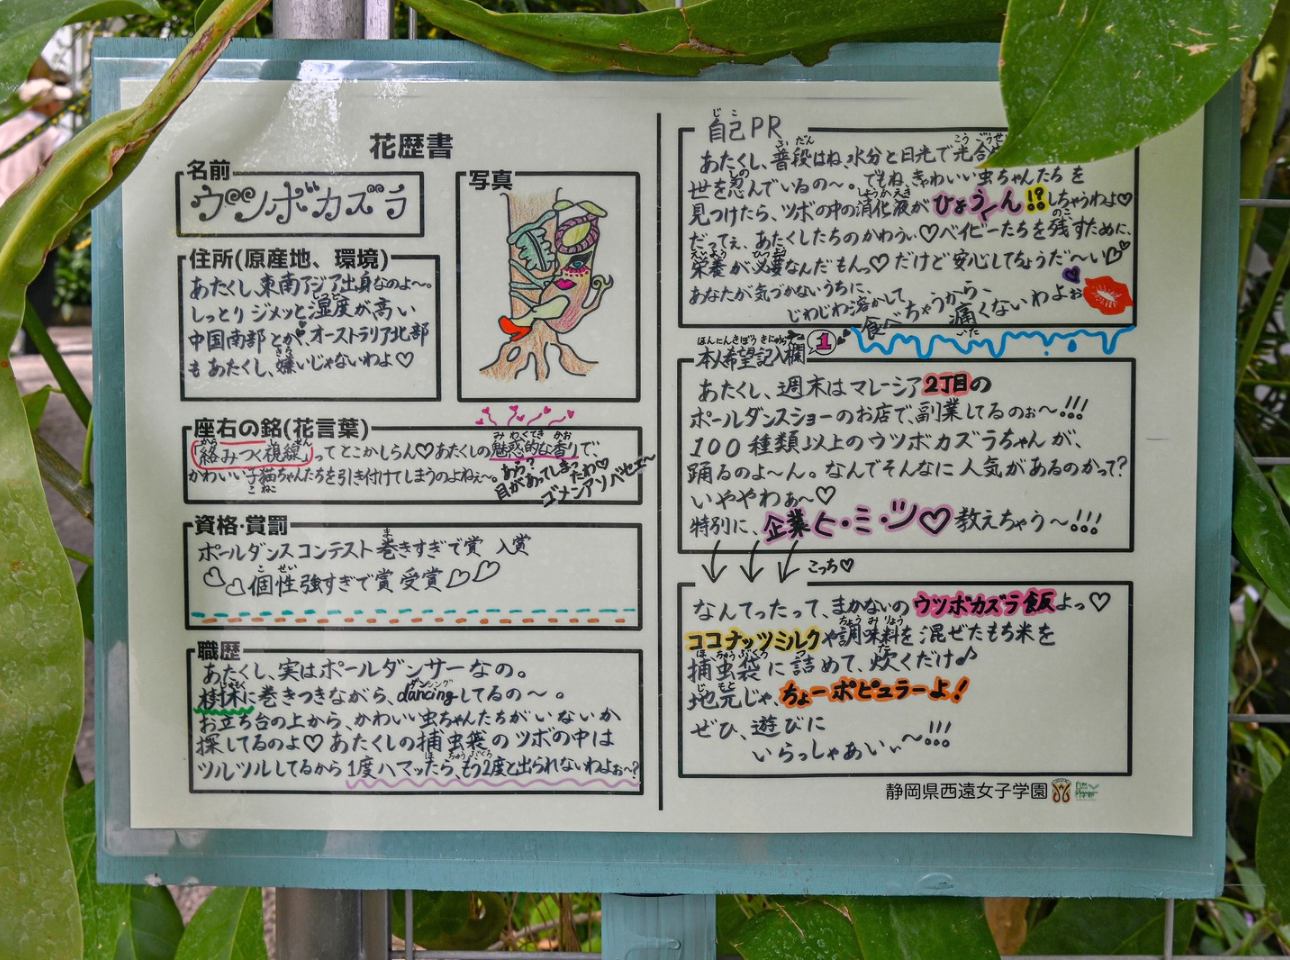 花歴書
名前
ウツボカズラ
写真
住所(原産地、環境)
あたくし、東南アジア出身なのよ〜。
しっとり ジメッと湿度が高い
中国南部 とか、オーストラリア北部
も あたくし、嫌いじゃないわよ♡
座右の銘(花言葉)
絡みつく視線 ってとこかしらん♡あたくしの魅惑的な香りで、
かわいい子猫ちゃんたちを引き付けてしまうのよねぇ〜。
あら?
目があってしまったわ♡
ゴメンアソバセェ〜
資格・賞罰
ポールダンスコンテスト巻きすぎで賞 入賞
個性強すぎで賞 受賞
職歴
あたくし、実はポールダンサーなの。
樹木に巻きつきながら、dancingしてるの〜。
お立ち台の上から、かわいい虫ちゃんたちがいないか
探してるのよ♡ あたくしの捕虫袋のツボの中は
ツルツルしてるから 1度ハマッたら、もう2度と出られないわよぉ〜?
自己PR
あたくし、普段はね、水分と日光で光合
世を忍んでいるの〜。でもね、きゃわいい虫ちゃんたちを
見つけたら、ツボの中の消化液が ひょう〜ん!?しちゃうわよ♡
だってぇ、あたくしたちのかわうぃ♡ベイビーたちを残すために、
栄養が必要なんだもんっ♡ だけど安心してちょうだ〜い♡
あなたが気づかないうちに、
じわじわ溶かして
食べちゃうから、
痛くないわよぉ
本人希望記入欄 1
あたくし、週末はマレーシア2丁目の
ポールダンスショーのお店で、副業してるのぉ〜!!!
100種類以上のウツボカズラちゃんが、
踊るのよ〜ん。なんでそんなに人気があるのかって?
いややわぁ〜♡
特別に、企業ヒ・ミ・ツ♡教えちゃう〜!!!
こっち♡
なんてったって、まかないのウツボカズラ飯よっ♡
ココナッツミルクや調味料を混ぜたもち米を
捕虫袋に詰めて、炊くだけ♪
地元じゃ、ちょーポピュラーよ!
ぜひ、遊びに
いらっしゃあいぃ〜!!!
静岡県西遠女子学園